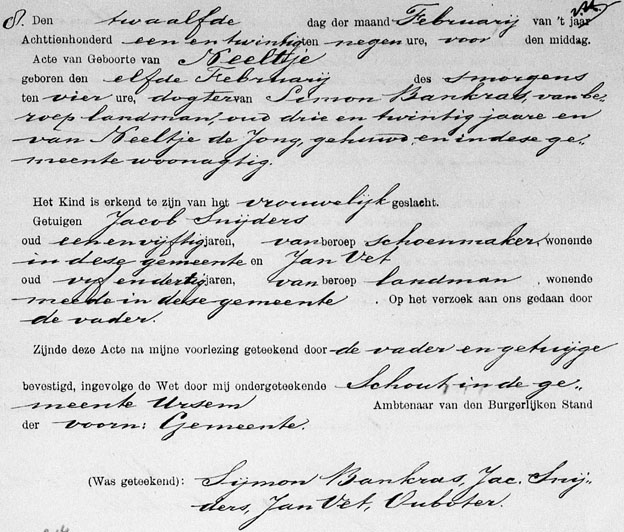 8. Den twaalfde dag der maand Februarij van 't jaar
Achttienhonderd een en twintig ten negen ure, voor den middag.
Acte van Geboorte van Neeltje
geboren den elfde Februarij des smorgens
ten vier ure, dogter van Simon Bankras, van be-
roep landman, oud drie en twintig jaare en
van Neeltje de Jong, gehuwd, en in dese ge-
meente woonagtig.
Het Kind is erkend te zijn van het vrouwelijk geslacht.
Getuigen Jacob Snijders
oud een en vijftig jaren, van beroep schoenmaker, wonende
in dese gemeente en Jan Vet
oud vijf en dertig jaren, van beroep landman, wonende
meede in dese gemeente. Op het verzoek aan ons gedaan door
de vader.
Zijnde deze Acte na mijne voorlezing geteekend door de vader en getuijge
bevestigd, ingevolge de Wet door mij ondergeteekende Schout in de ge-
meente Ursem Ambtenaar van den Burgerlijken Stand
der voorn: Gemeente.
(Was geteekend): Sijmon Bankras, Jac. Snij-
ders, Jan Vet, Ouboter.